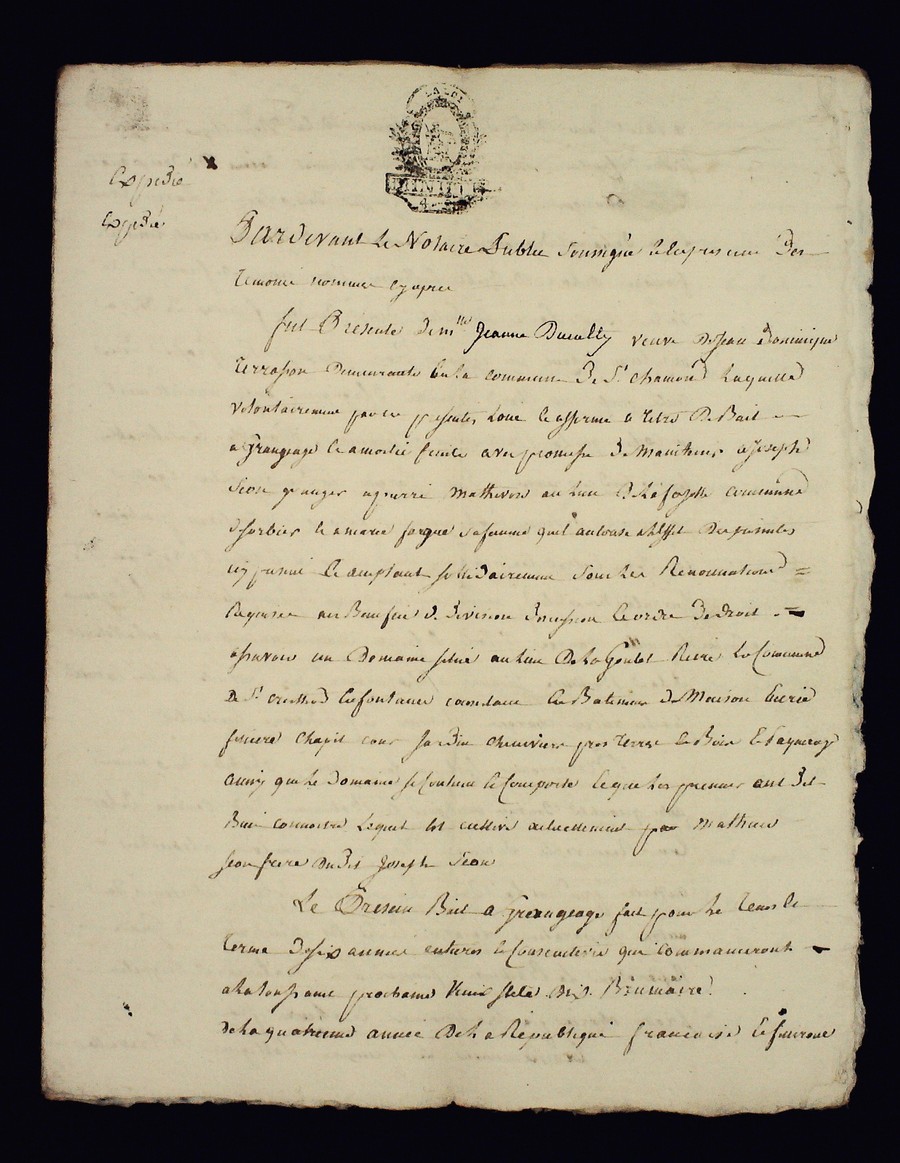 LA LOI
MINUTE
4
Expedié
Expedié
Pardevant Le Notaire Public Soussigné Et En presence Des
temoins nommes cy apres
fut Presente Demlle Jeanne veuve De Jean Dominique
terrasson Demeurante En la commune De St chamond Laquelle
volontairement par ces presentes Loue Et afferme a titre De Bail
a Grangeage Et a moitié fruits avec promesse De Maintenir a Joseph
Seon granger au Lieu De La commune
De sorbier Et a marie sa femme quil autorise a Leffet Des presentes
icy presents Et acceptant sollidairement sous Les Renonciations
au Benefice De Division Discussion Et ordre De Droit
assavoir un Domaine situé au Lieu De La Riere La Commune
De St En fontaines consistant En Batiments De Maison Ecurie
feniere chapit cour Jardin cheneviere pres terres Et Bois Et Paquerage
ainsy que Le Domaine se Contient Et Comporte Et que Les preneurs ont Dit
Bien connoitre Lequel Est cultivé actuellement par Mathieu
Seon frere Dudit Joseph Seon
Le Present Bail a Grangeage fait pour Le tems Et
terme De six années entieres Et Consecutives qui Commanceront
a La toussaint prochaine vieux stile Brumaire
de La quatrieme année De La Republique francoise Et finiront